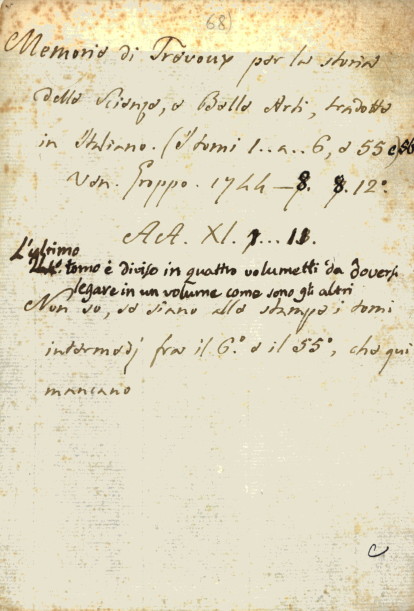 68)
Memorie di Trevoux per la storia
delle Scienze, e Belle Arti, tradotte
in Italiano. (i tomi 1..a..6, e 55 e 56
Ven. Groppo. 1744 — 8. 8. 12°
AA. XI. 9...11.
L'ultimo
tomo è diviso in quattro volumetti da doversi
legare in un volume come sono gli altri
Non so, se siano alle stampe i tomi
intermedj fra il 6.° e il 55°, che qui
mancano